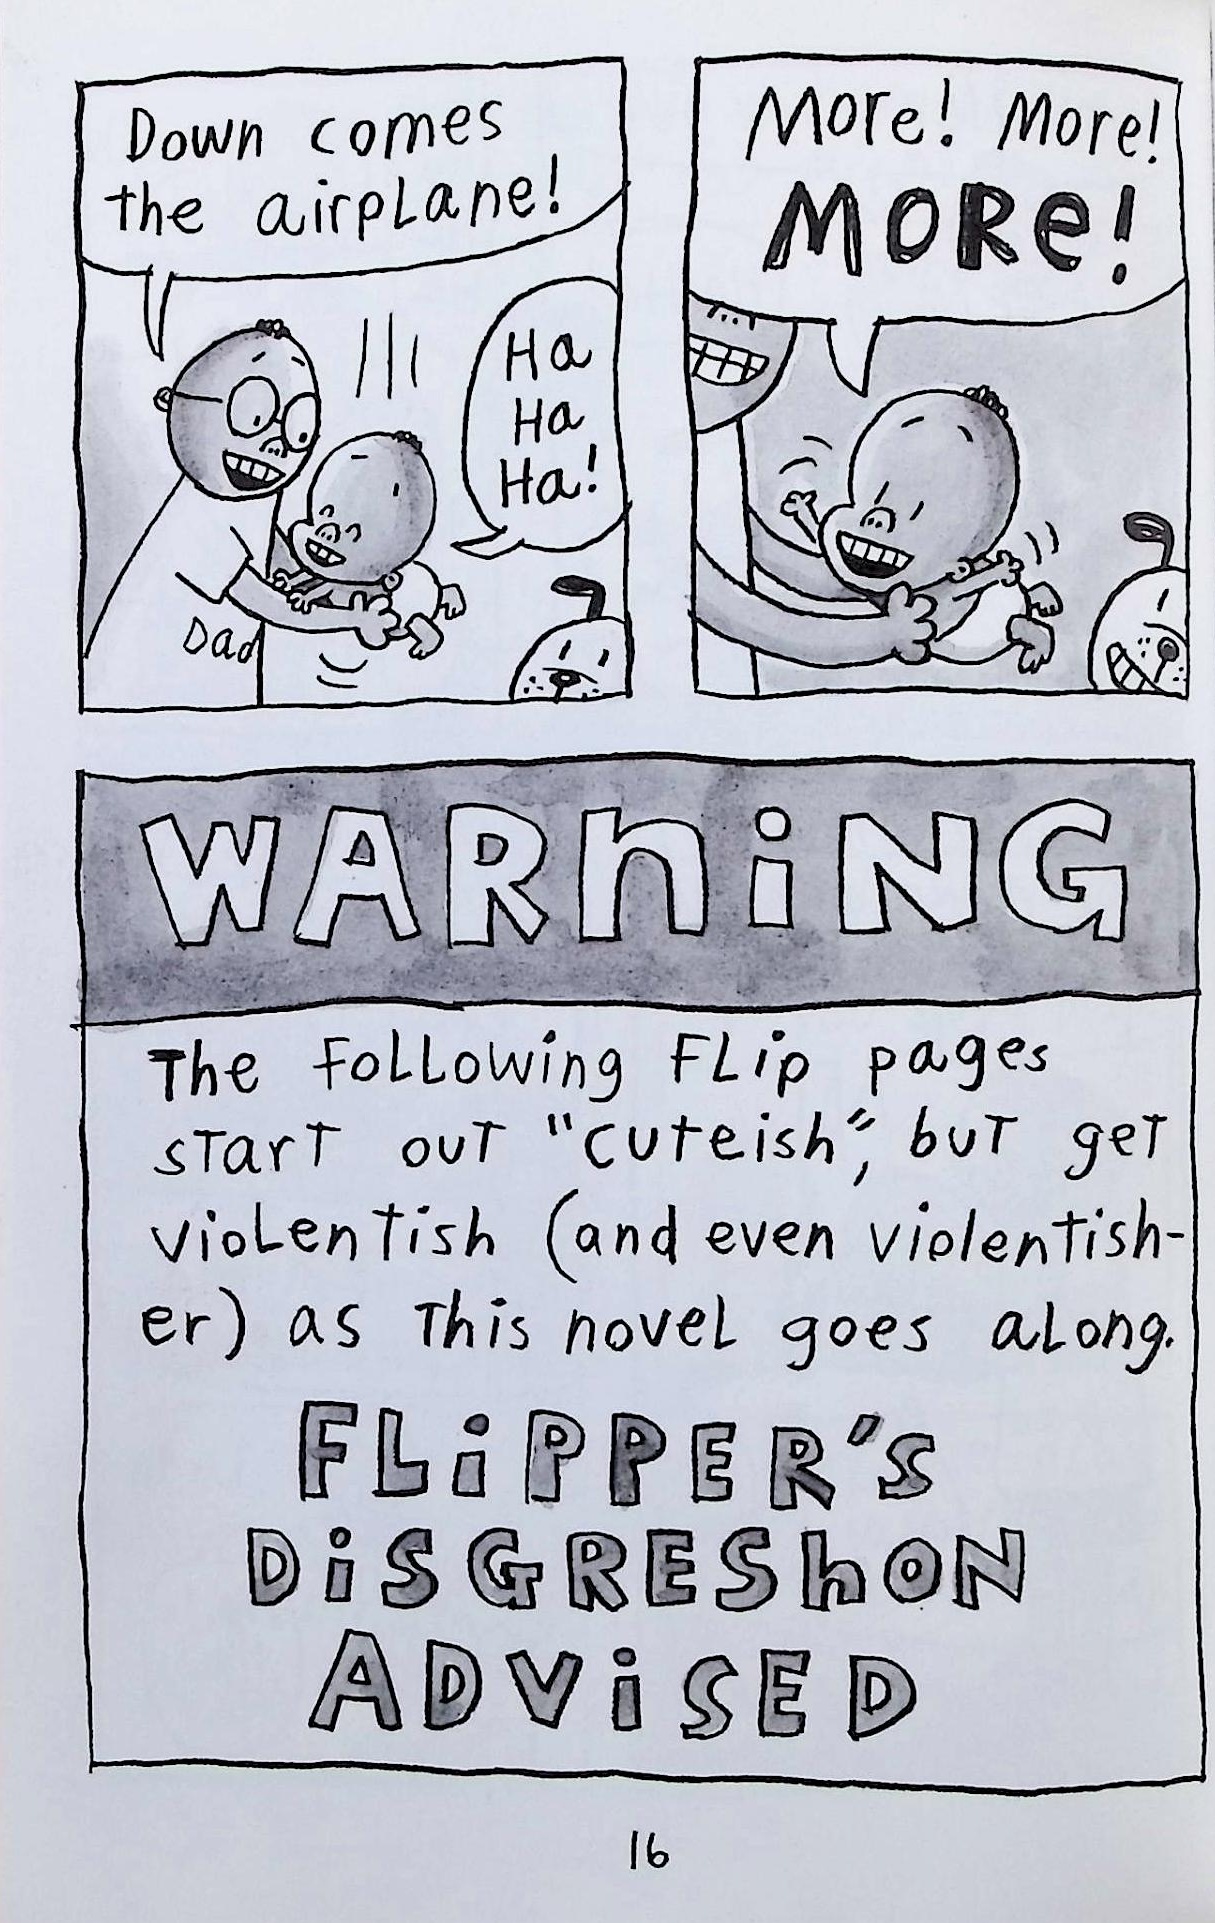 Down comes
the airplane!
Ha
Ha
Ha!
Dad
More! More!
MORe!
WARnING
The following Flip pages
start out "cuteish", but get
violentish (and even violentish-
er) as this novel goes along.
FLiPPER'S
DiSGREShON
ADViSED
16